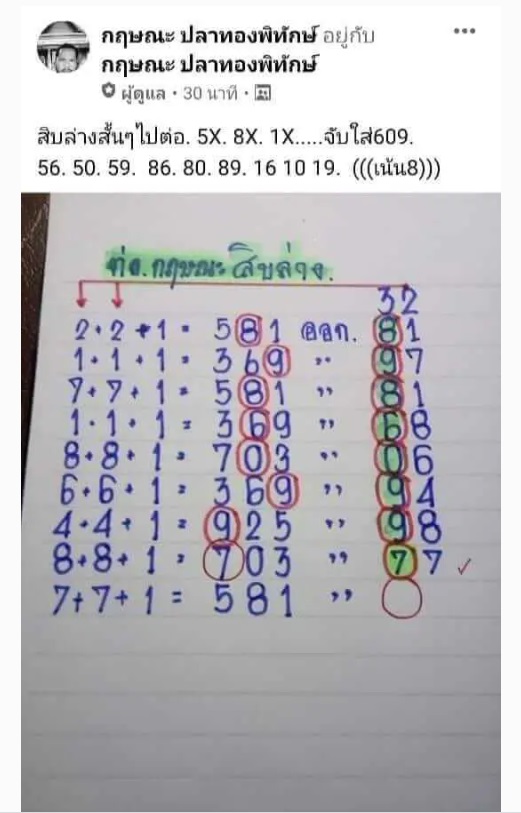 กฤษณะ ปลาทองพิทักษ์ อยู่กับ
กฤษณะ ปลาทองพิทักษ์
ผู้ดูแล · 30 นาที ·
สิบล่างสั้นๆไปต่อ. 5X. 8X. 1X.....จับใส่609.
56. 50. 59. 86. 80. 89. 16 10 19. (((เน้น8)))
ต่อ.กฤษณะ สิบล่าง.
32
2+2+1= 581 ออก. 81
1+1+1= 369 " 97
7+7+1= 581 " 81
1+1+1= 369 " 68
8+8+1= 703 " 06
6+6+1= 369 " 94
4+4+1= 925 " 98
8+8+1= 703 " 77 ✓
7+7+1= 581 "